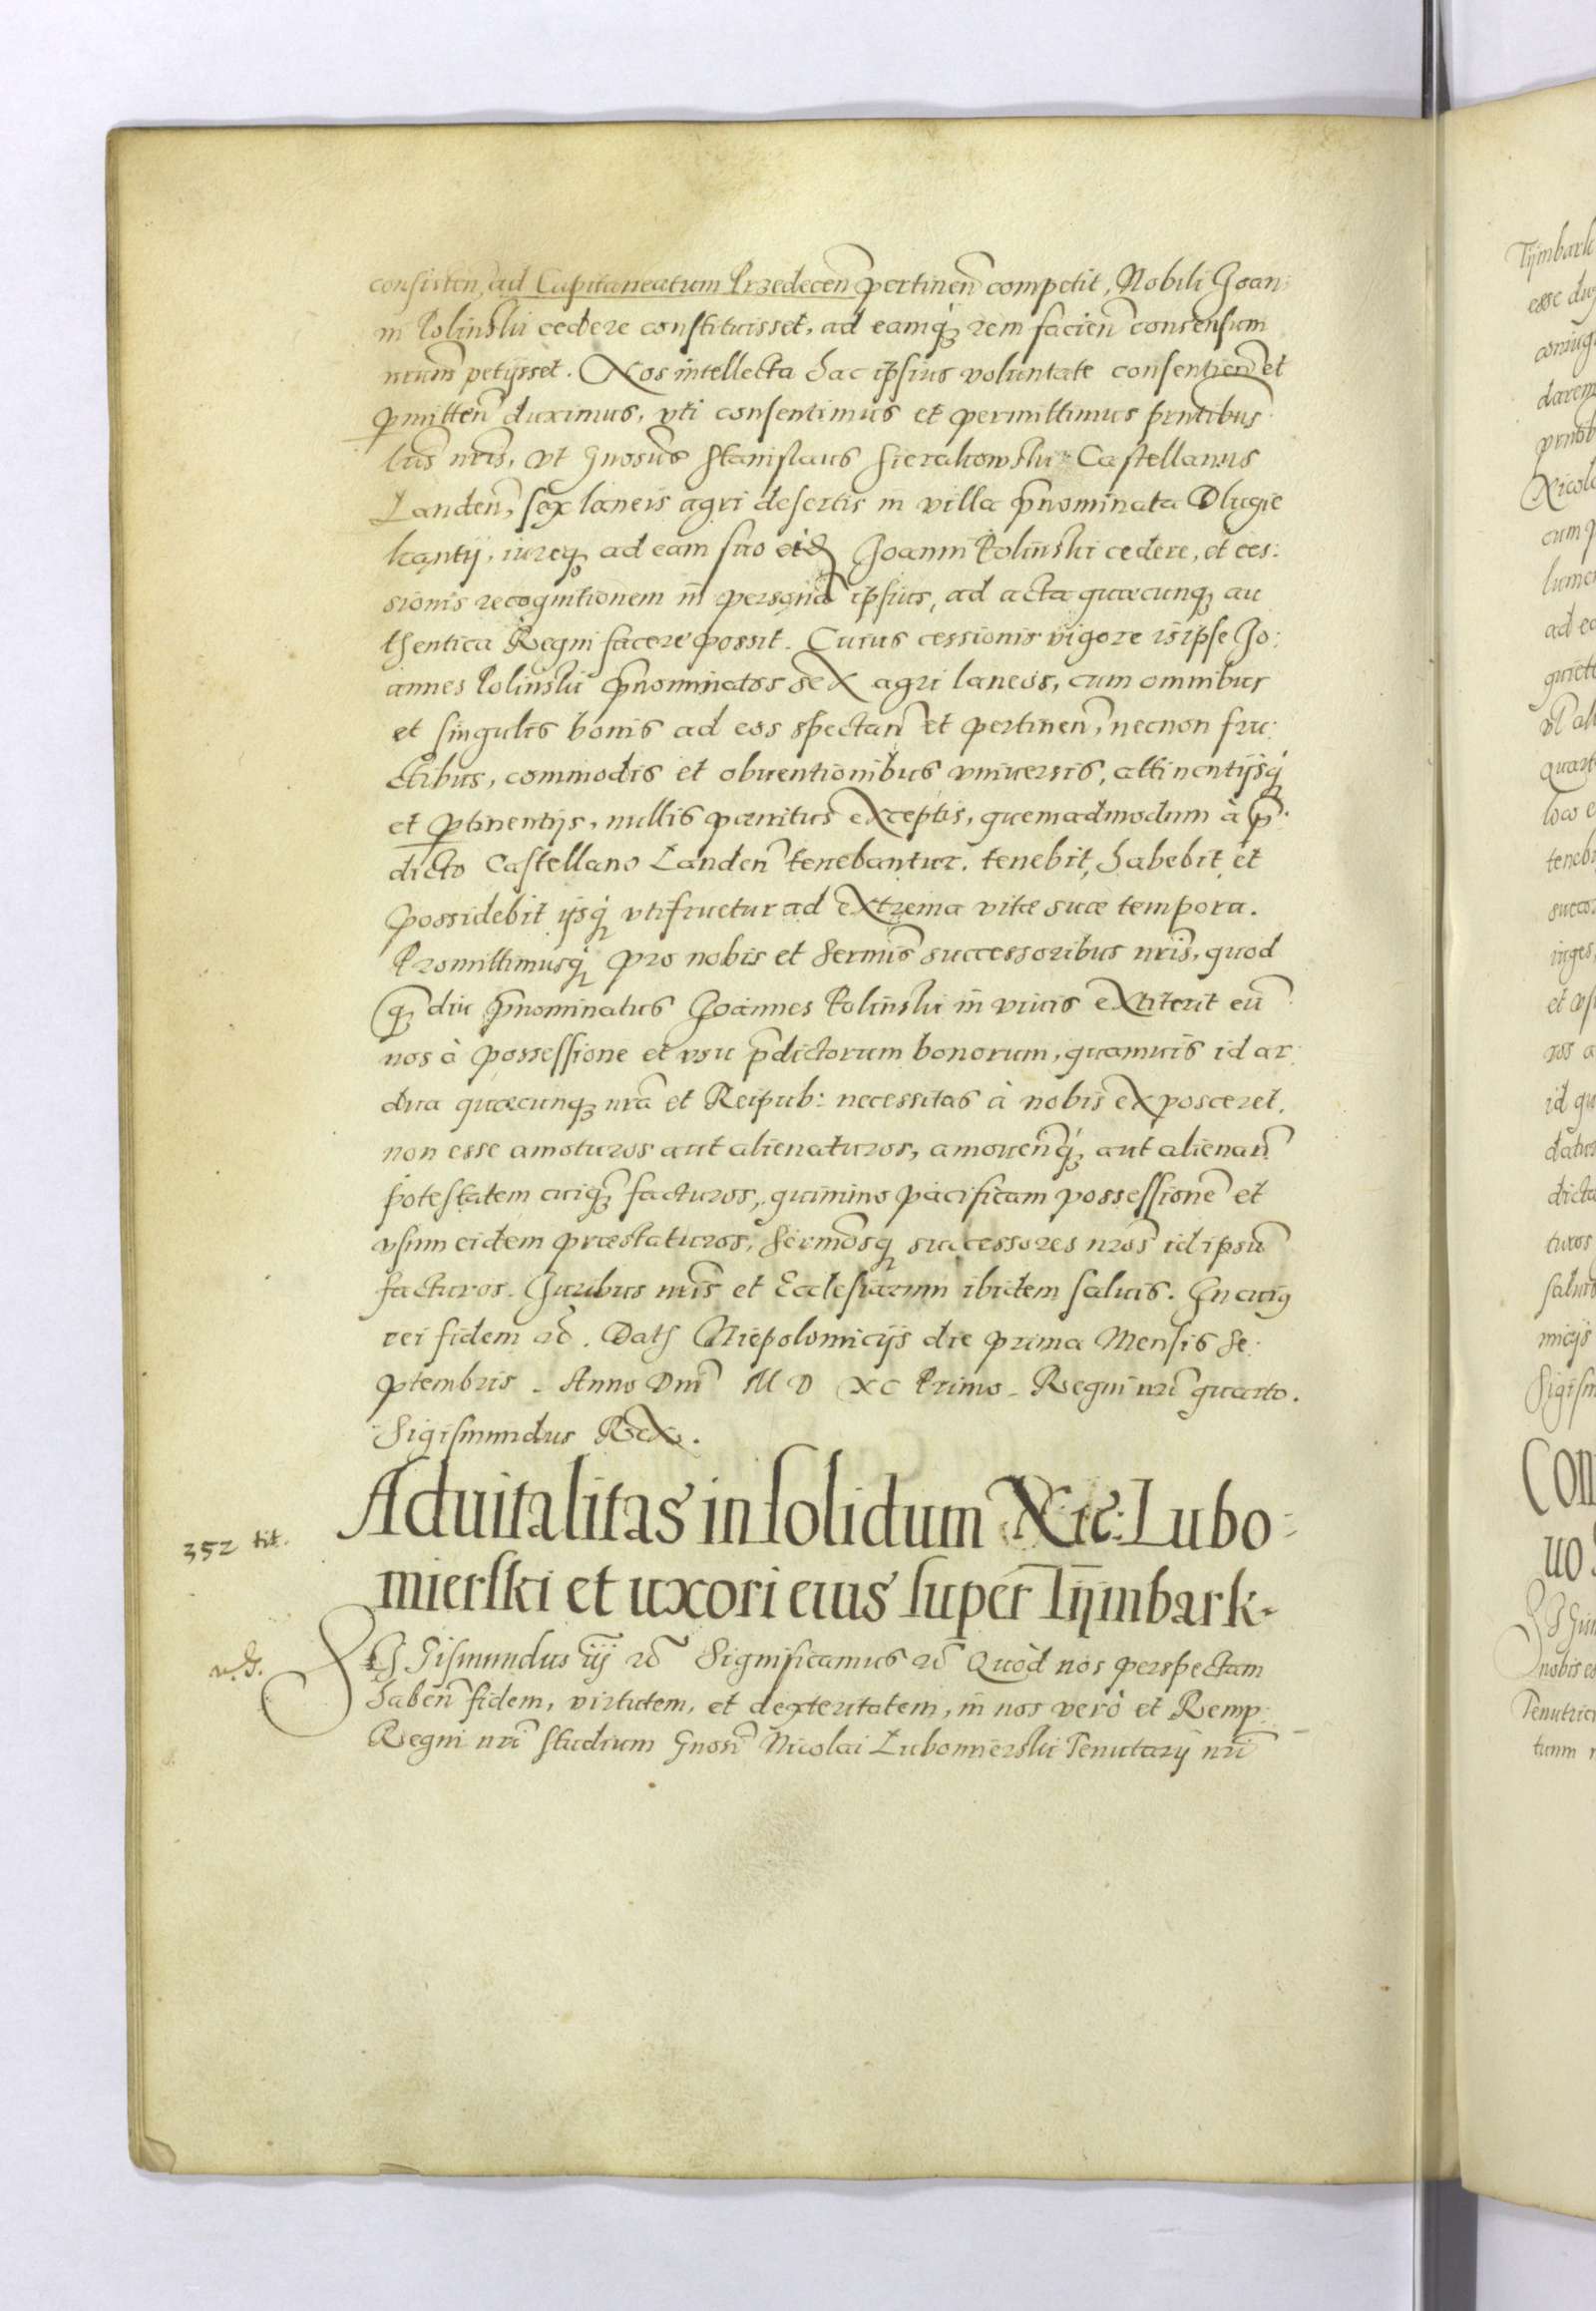 consisten̄, ad Capitaneatum Przedecen̄ pertinen̄ competit, Nobili Joan:
ni Polinski cedere constituisset, ad eamq́ꝫ rem facien̄ consensum
nrum̄ petijsset. Nos intellecta hac ip̄sius voluntate consentien̄ et
ꝑmitten̄ duximus, vti consentimus et permittimus prn̄tibus
lr̄is nr̄is, vt Gnosus̄ Stanislaus Sierakowski Castellanus
Landen̄, sex laneis agri desertis in villa p̄nominata Dlugie
kąntÿ, iureqꝫ ad eam suo eid Joanni Polinski cedere, et ces:
sionis recognitionem in persona ip̄sius, ad acta quæcunqꝫ au
thentica Regni facere possit. Cuius cessionis vigore is ip̄se Jo:
annes Polinski p̄nominatos sex agri laneos, cum omnibus
et singulis bonis ad eos spectan̄ et pertinen̄, necnon fru:
ctibus, commodis et obuentionibus vniuersis, attinentijsq́ꝫ
et ꝑtinentijs, nullis pænitus exceptis, quemadmodum à p̄:
dicto Castellano Landen̄ tenebantur. tenebit, habebit, et
possidebit ijsq́ꝫ vtifruetur ad extrema vitæ suæ tempora.
Promittimusq́ꝫ pro nobis et Sermis̄ successoribus nris̄, quod
qꝫ diu p̄nominatus Joannes Polinski in viuis extiterit eū
nos à possessione et vsu p̄dictorum bonorum, quamuis id ar:
dua quæcunqꝫ nrā et Reipub: necessitas à nobis exposceret,
non esse amoturos aut alienaturos, amouen̄q́ꝫ aut alienan̄
potestatem cuiqꝫ facturos, quinimo pacificam possessionē et
vsum eidem præstaturos, Sermosq̄ꝫ successores nros̄ id ipsū
facturos. Juribus nris̄ et Ecclesiarum ibidem saluis. In cuiꝰ
rei fidem ꝛc̄. Datꝭ Niepolomicijs die prima Mensis Se:
ptembris. Anno Dni̅ M D XC Primo. Regni nri̅ quarto.
Sigismundus Rex.
Aduitalitas in solidum Nic: Lubo-
mierski et uxori eius super Tÿmbark.
352 tit.
SIGismundus iij ꝛc̄ Significamus ꝛc̄ Quòd nos perspectam
haben̄ fidem, virtutem, et dexteritatem, in nos verò et Remp:
Regni nri̅ studium Gnosi̅ Nicolai Lubomierski Tenutarÿ nri̅